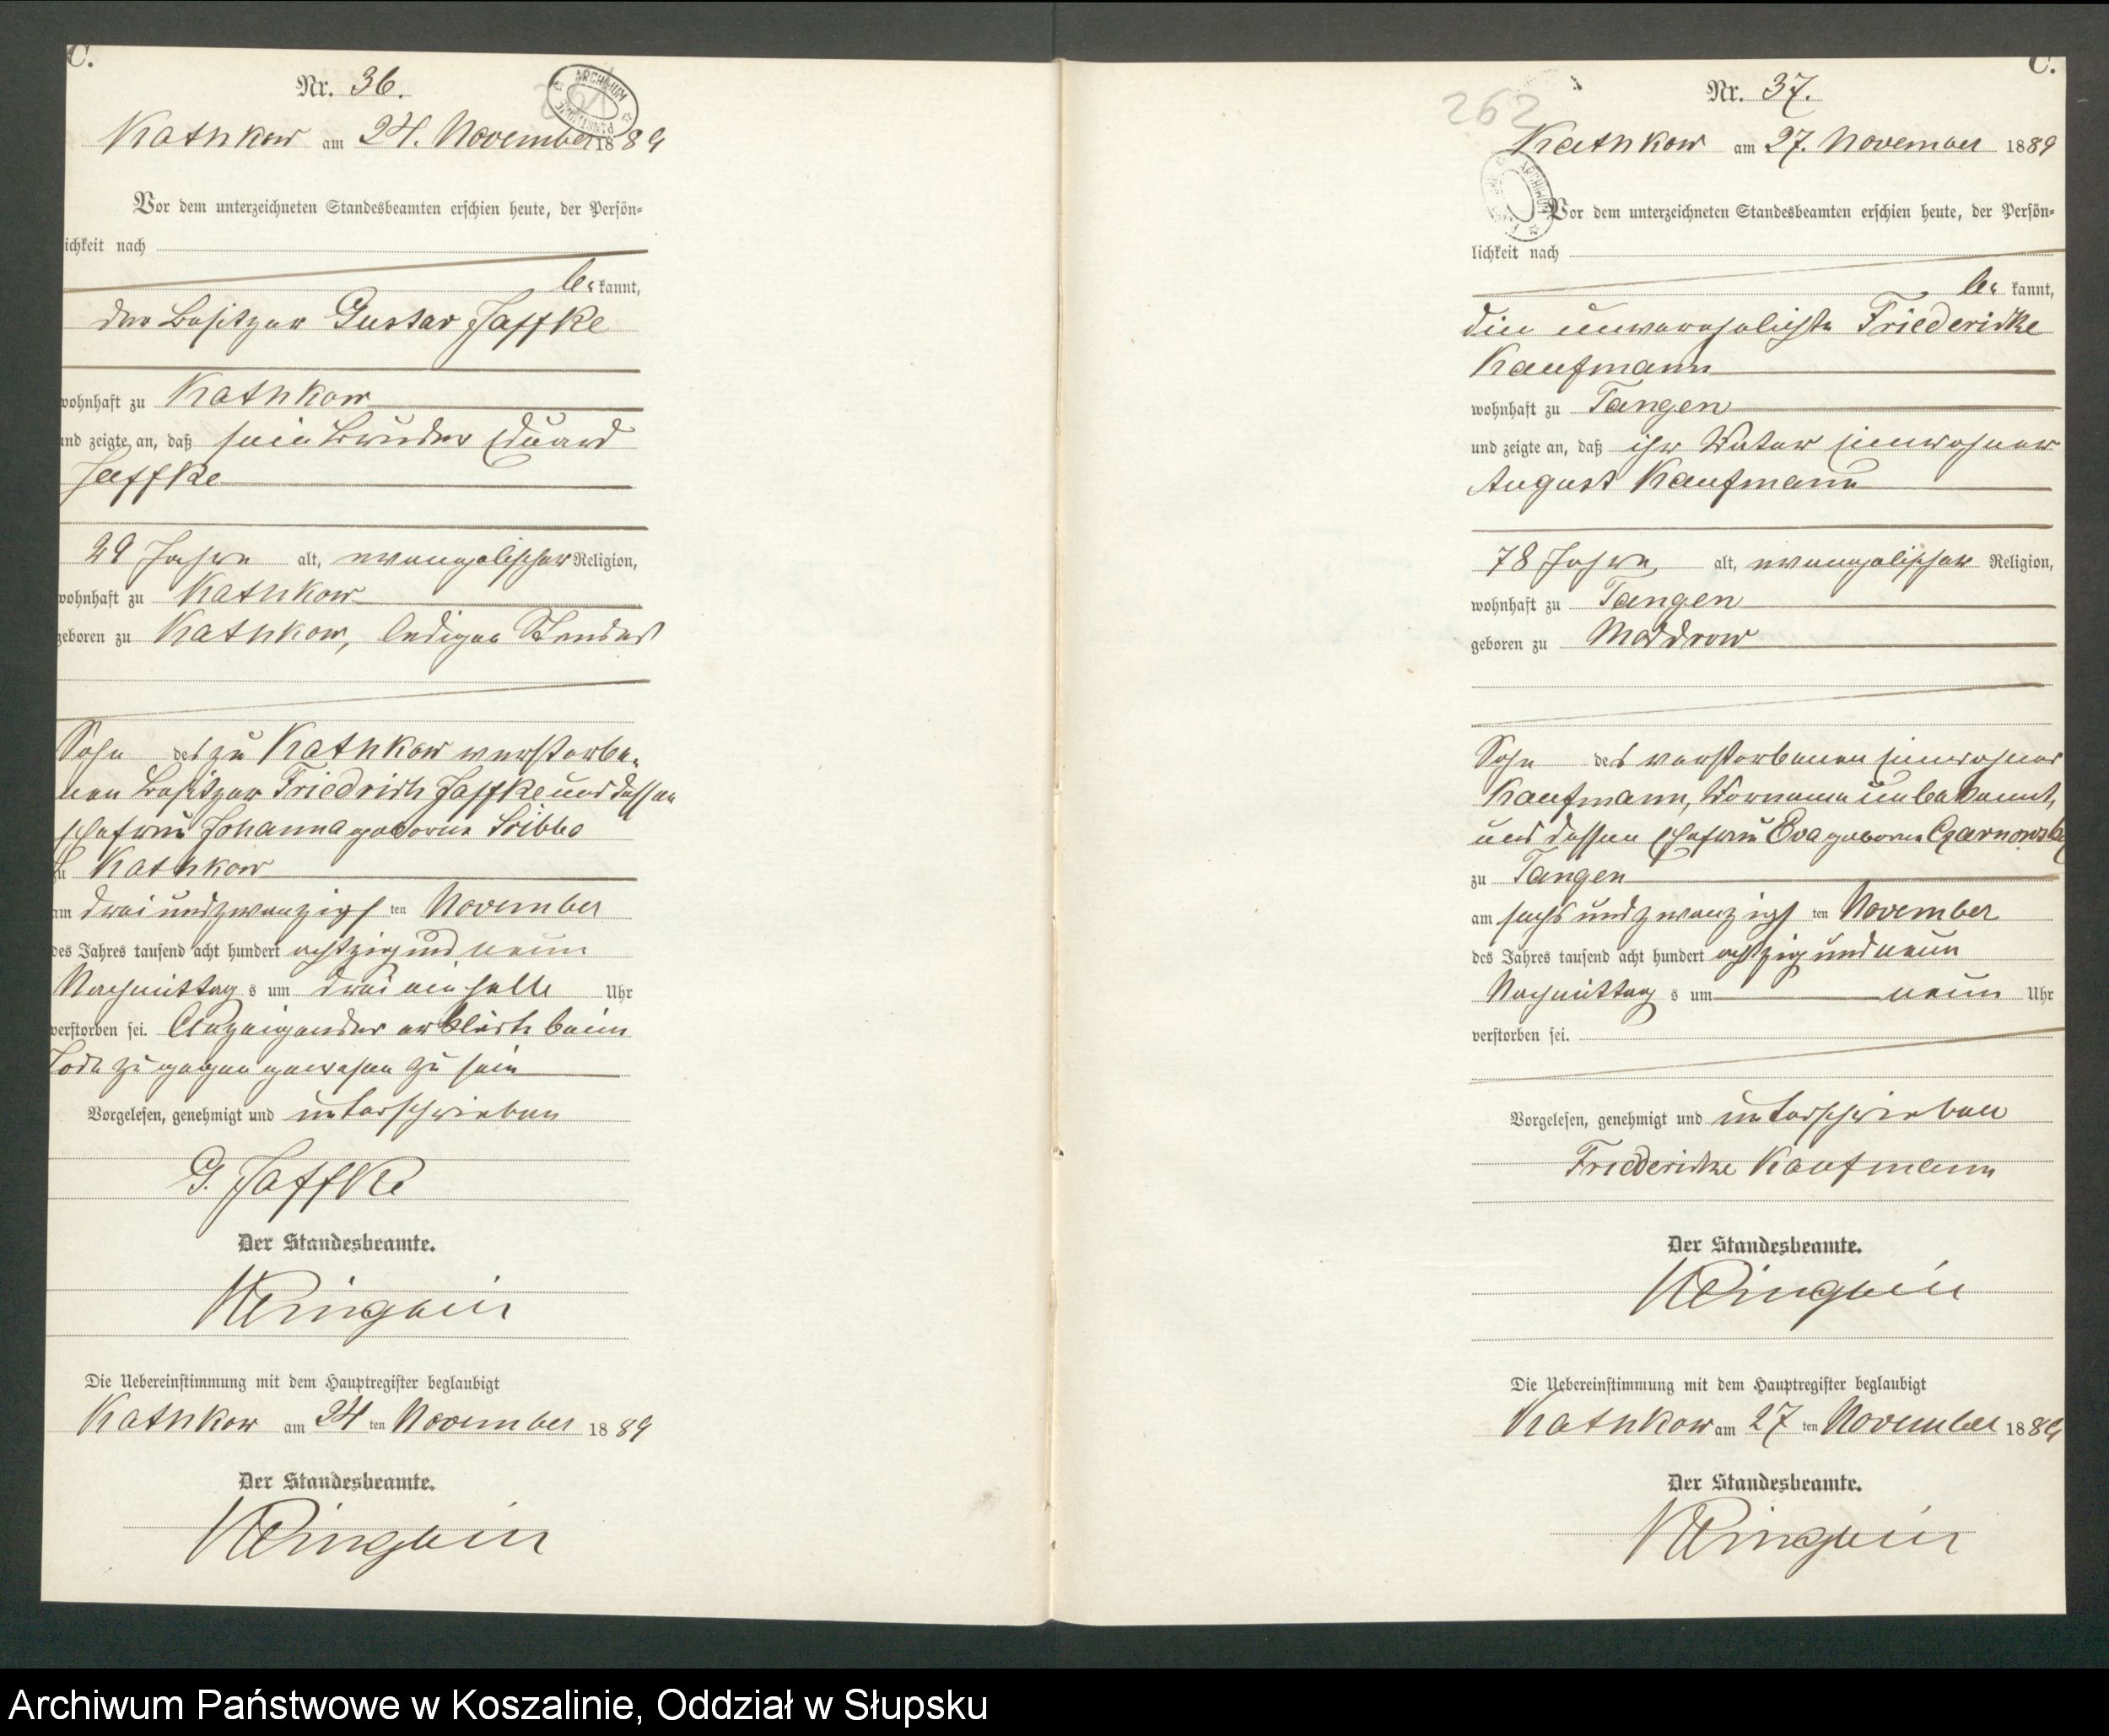 C.
Nr. 36.
Kathkow am 24. November 1889
Vor dem unterzeichneten Standesbeamten erschien heute, der Persön-
lichkeit nach
be kannt,
der Besitzer Gustav Jaffke
wohnhaft zu Kathkow
und zeigte an, daß sein Bruder Eduard
Jaffke
29 Jahre alt, evangelischer Religion,
wohnhaft zu Kathkow
geboren zu Kathkow, ledigen Standes
Sohn des zu Kathkow verstorbe-
nen Besitzer Friedrich Jaffke und dessen
Ehefrau Johanna geborne
zu Kathkow
am drei und zwanzigs ten November
des Jahres tausend acht hundert achtzig und neun
Nachmittag s um drei ein halb Uhr
verstorben sei. Anzeigender erklärte beim
Tode zugegen gewesen zu sein
Vorgelesen, genehmigt und unterschrieben
G. Jaffke
Der Standesbeamte.
Die Uebereinstimmung mit dem Hauptregister beglaubigt
Kathkow am 24 ten November 1889
Der Standesbeamte.
C.
262
Nr. 37.
Kathkow am 27. November 1889
Vor dem unterzeichneten Standesbeamten erschien heute, der Persön-
lichkeit nach
be kannt,
die unverehelichte Friederidke
Kaufmann
wohnhaft zu Tangen
und zeigte an, daß ihr Vater Einwohner
August Kaufmann
78 Jahre alt, evangelischer Religion,
wohnhaft zu Tangen
geboren zu Moddrow
Sohn des verstorbenen Einwohner
Kaufmann, Vorname unbekannt,
und dessen Ehefrau Eva geborne Czarnowsky
zu Tangen
am sechs und zwanzigs ten November
des Jahres tausend acht hundert achtzig und neun
Nachmittag s um neun Uhr
verstorben sei.
Vorgelesen, genehmigt und unterschrieben
Friederidke Kaufmann
Der Standesbeamte.
Die Uebereinstimmung mit dem Hauptregister beglaubigt
Kathkow am 27 ten November 1889
Der Standesbeamte.
Archiwum Państwowe w Koszalinie, Oddział w Słupsku